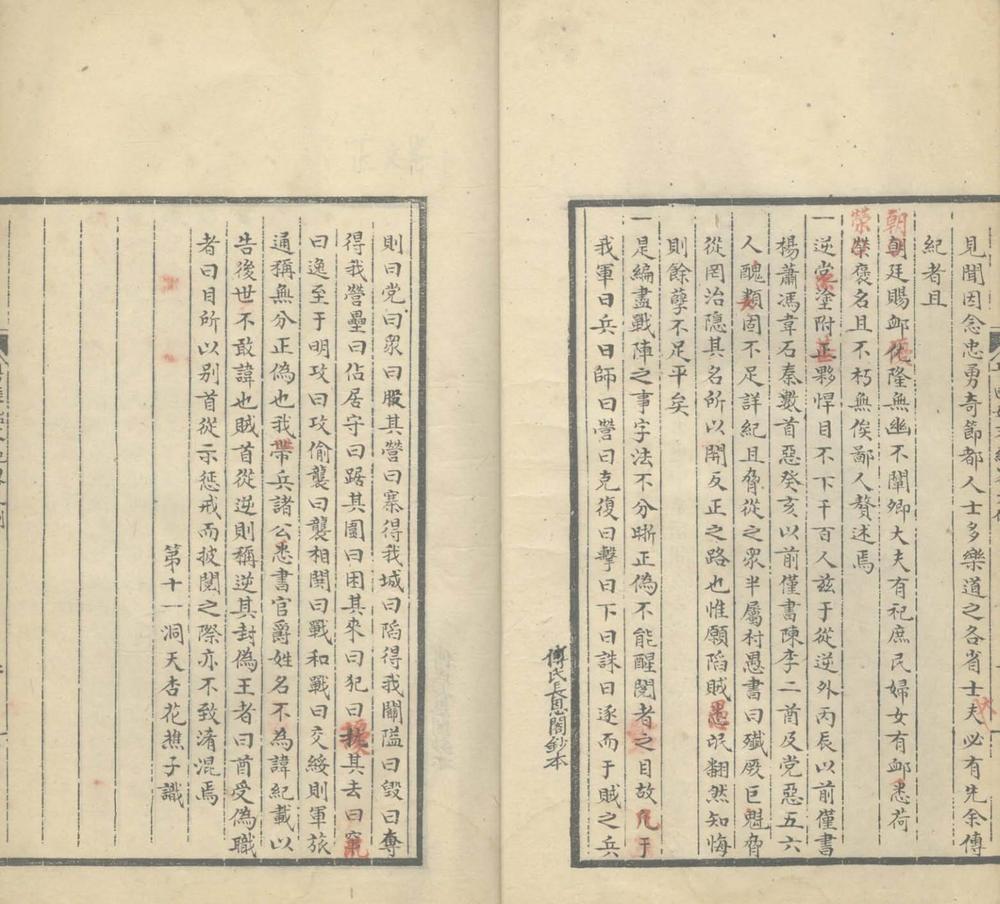 見聞因念忠勇奇節都人士多樂道之各省士夫必有先余傳
紀者且
朝廷賜卹優隆無幽不闡卿大夫有祀庶民婦女有卹悉荷
榮褒名且不朽無俟鄙人贅述焉
一逆黨塗附正夥悍目不下千百人兹于從逆外丙辰以前僅書
楊蕭馮韋石秦數首惡癸亥以前僅書陳李二酋及党惡五六
人醜類固不足詳紀且脅從之眾半屬村愚書曰殲厥巨魁脅
從罔治隱其名所以開反正之路也惟願陷賊愚氓翻然知悔
則餘孽不足平矣
一是編盡戰陣之事字法不分晰正偽不能醒閱者之目故凡于
我軍曰兵曰師曰營曰克復曰擊曰下曰誅曰逐而于賊之兵
傅氏長恩閣鈔本
則曰党曰眾曰股其營曰寨得我城曰陷得我關隘曰毀曰奪
得我營壘曰佔居守曰踞其圍曰困其來曰犯曰擾其去曰竄
曰逸至于明攻曰攻偷襲曰襲相閧曰戰和戰曰交綏則軍旅
通稱無分正偽也我帶兵諸公悉書官爵姓名不為諱紀載以
告後世不敢諱也賊首從逆則稱逆其封偽王者曰酋受偽職
者曰目所以别首從示惩戒而披閱之際亦不致淆混焉
第十一洞天杏花樵子識